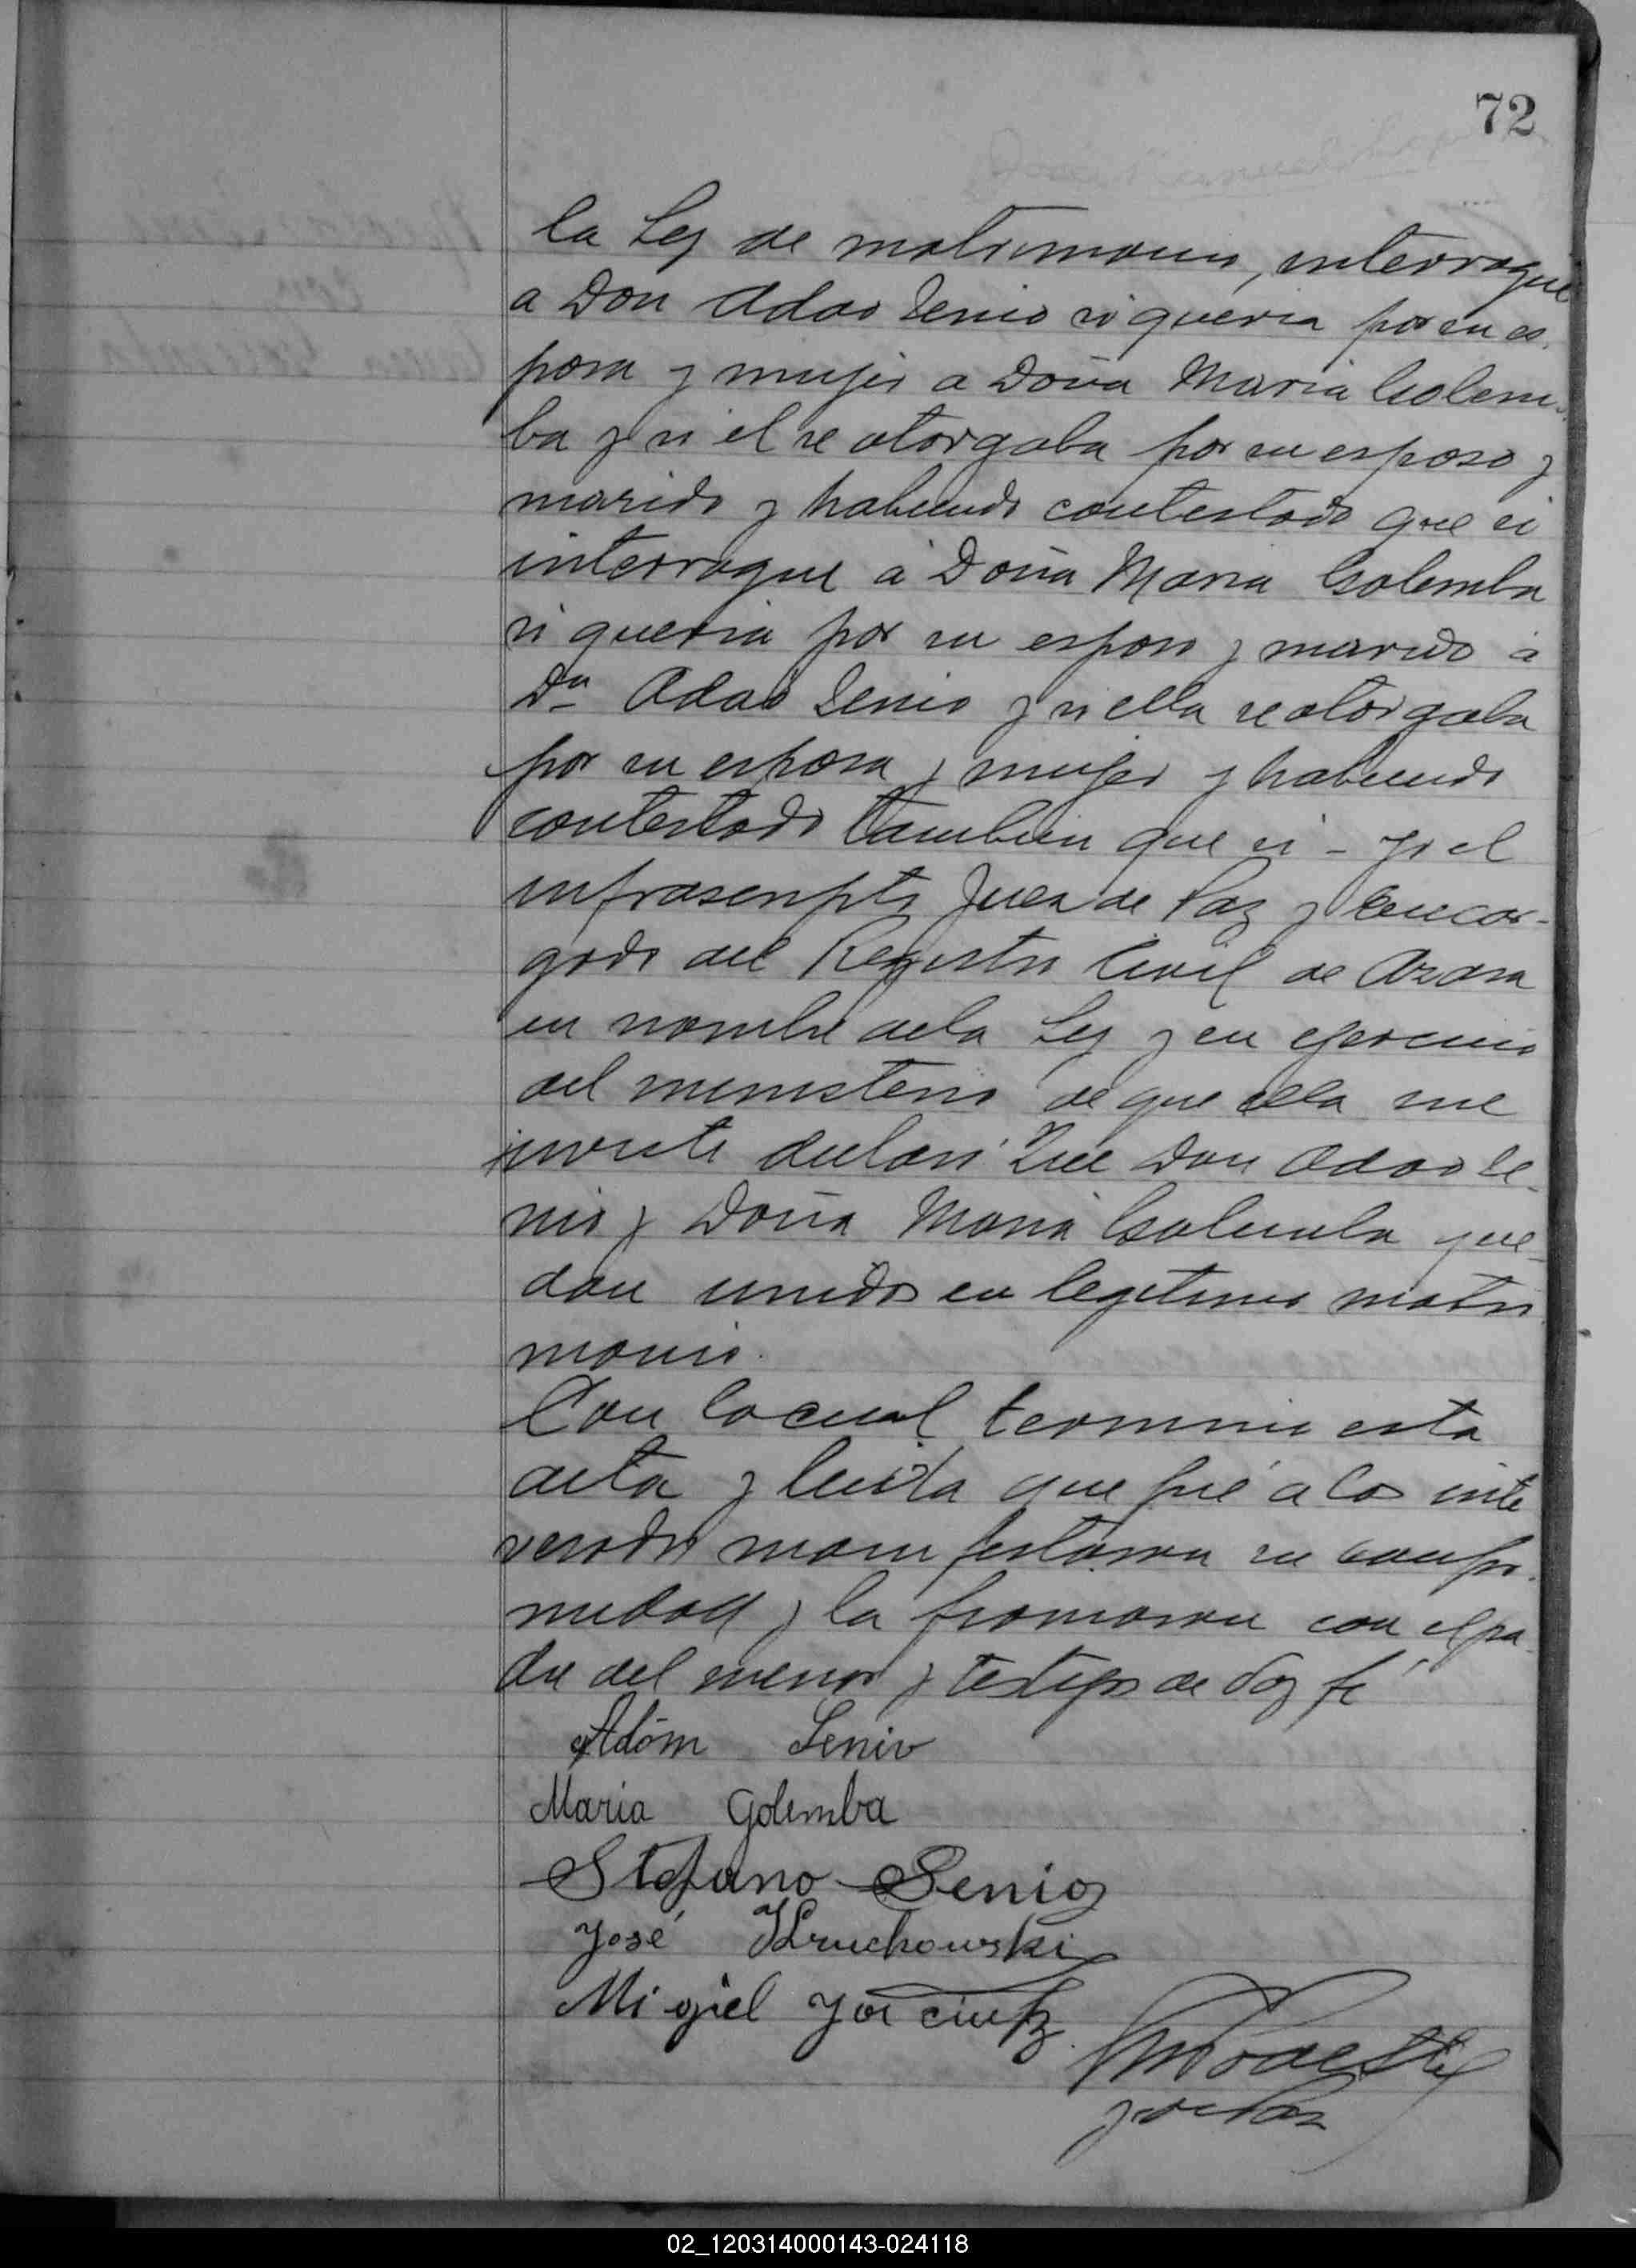 72
la Ley de matrimonio, interrogue
a Don Adao Senio si queria por su es
posa y mujer a Doña Maria Golem
ba y si el se otorgaba por su esposo y
marido y habiendo contestado que si
interrogue á Doña Maria Golemba
si queria por su esposo y marido á
Dn Adao Senio y si ella se otorgaba
por su esposa y mujer y habiendo
contestado tambien que si - yo el
infrascripto Juez de Paz y Encar-
gado del Registro Civil de Azara
en nombre dela Ley y en ejercicio
del ministerio de que ella me
inviste declaré Que Don Adao Se-
nio y Doña Maria Golemba que-
dan unidos en legitimo matri
monio.
Con lo cual termino esta
acta y leida que fué a los inte
resados manifestaron su confor
midad y la firmaron con el pa
dre del menor y testigos de doy fé
Adóm Seniv
Maria Golemba
Stefano Senio
José Kruchowski
Migiel
J de Paz
02_120314000143-024118